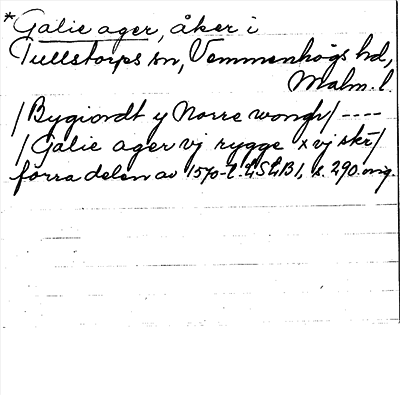 *Galie ager, åker i
Tullstorps sn, Vemmenhögs hd,
Malm. l.
/Bygiordt y Norre wongh/ ----
/Galie ager vj rygge x vj skr/
förra delen av 1570-t. LSLB 1, s. 290. orig.